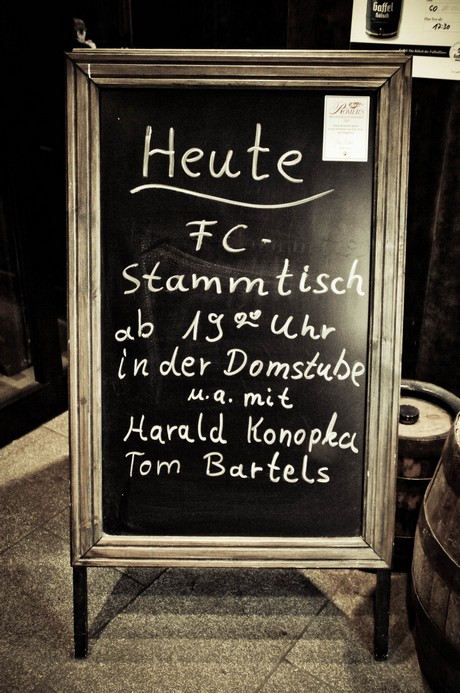 Gaffel
Kölsch
12:30
Heute
FC -
Stammtisch
ab 19⁰⁰ Uhr
in der Domstube
u.a. mit
Harald Konopka
Tom Bartels